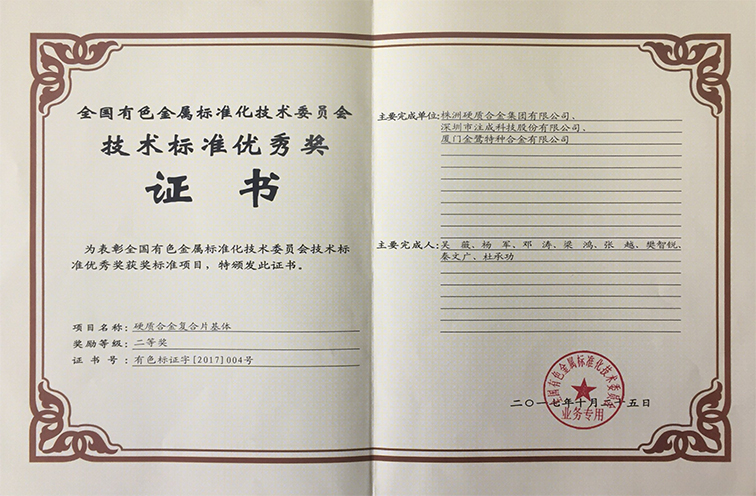 全国有色金属标准化技术委员会
技术标准优秀奖
证 书
为表彰全国有色金属标准化技术委员会技术标
准优秀奖获奖标准项目，特颁发此证书。
项目名称：硬质合金复合片基体
奖励等级：二等奖
证 书 号：有色标证字[2017]004号
主要完成单位：株洲硬质合金集团有限公司、
深圳市注成科技股份有限公司、
厦门金鹭特种合金有限公司
主要完成人：吴 薇、杨 军、邓 涛、梁 鸿、张 越、樊智锐、
秦文广、杜承功
全国有色金属标准化技术委员会
业务专用
二〇一七年十月二十五日